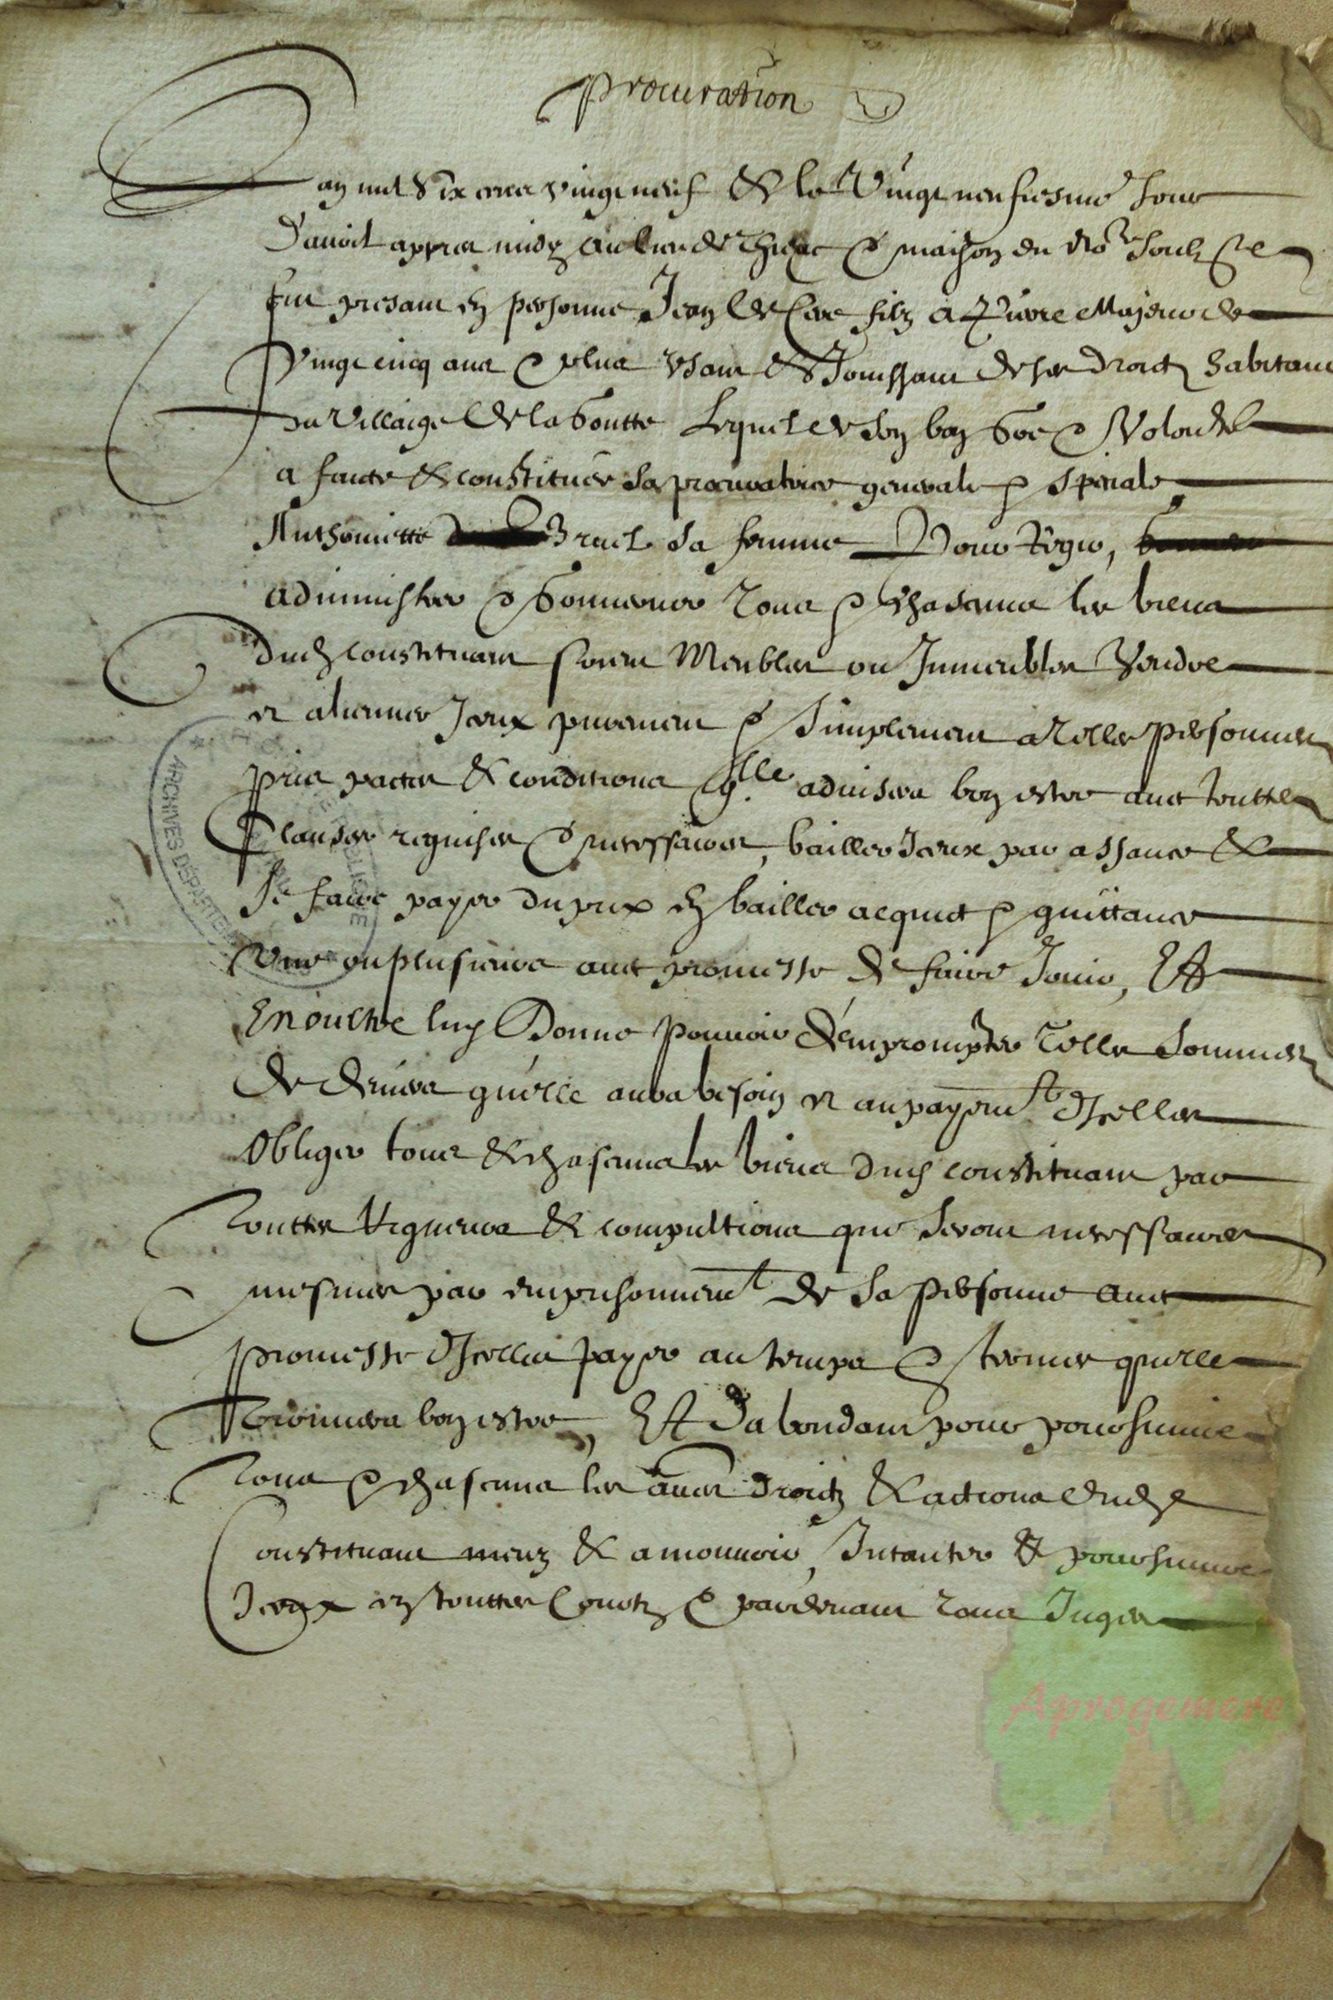 Procuration
L'an mil six cens vingt neuf & le vingt neufiesme jour
d'avoil appres midy au lieu de & maison du nore soubz sne
fut presant en personne Jean filz a Pierre majeur de
vingt cinq ans & plus usant & jouissant de ses droictz habitant
du villaige de la Goutte lequel de son bon gre & volonte
a faicte & constituee sa procuratrice generale & speciale
Anthoniette Bruel sa femme Pour regir,
administrer & gouverner tous & chascuns les biens
dud constituant soient meubles ou immeubles vendre
et aliener iceux purement & simplement a telles personnes
prix pactes & conditions qlle advisera bon estre avec touttes
clauses requises & necessaires, bailler iceux par assance &
se faire payer du prix en bailler acquict & quittance
une ou plusieurs avec promesse de faire jouir, Et
En oultre luy donne pouvoir d'emprompter telles sommes
de deniers qu'elle aura besoin et au payemt d'icelles
obliger tous & chascuns les biens dud constituant par
touttes rigueurs & compultions que seront necessaires
mesmes par emprisonnemt de sa personne avec
promesse d'icelles payer au temps & termes qu'elle
trouvera bon estre, Et d'abondant pour poursuivre
tous & chascuns les droictz & actions dud
Constituant meuz & a mouvoir, Intanter & poursuivre
iceux en touttes Courtz & pardevant tous Juges
ARCHIVES DÉPARTEM
Aprogemere